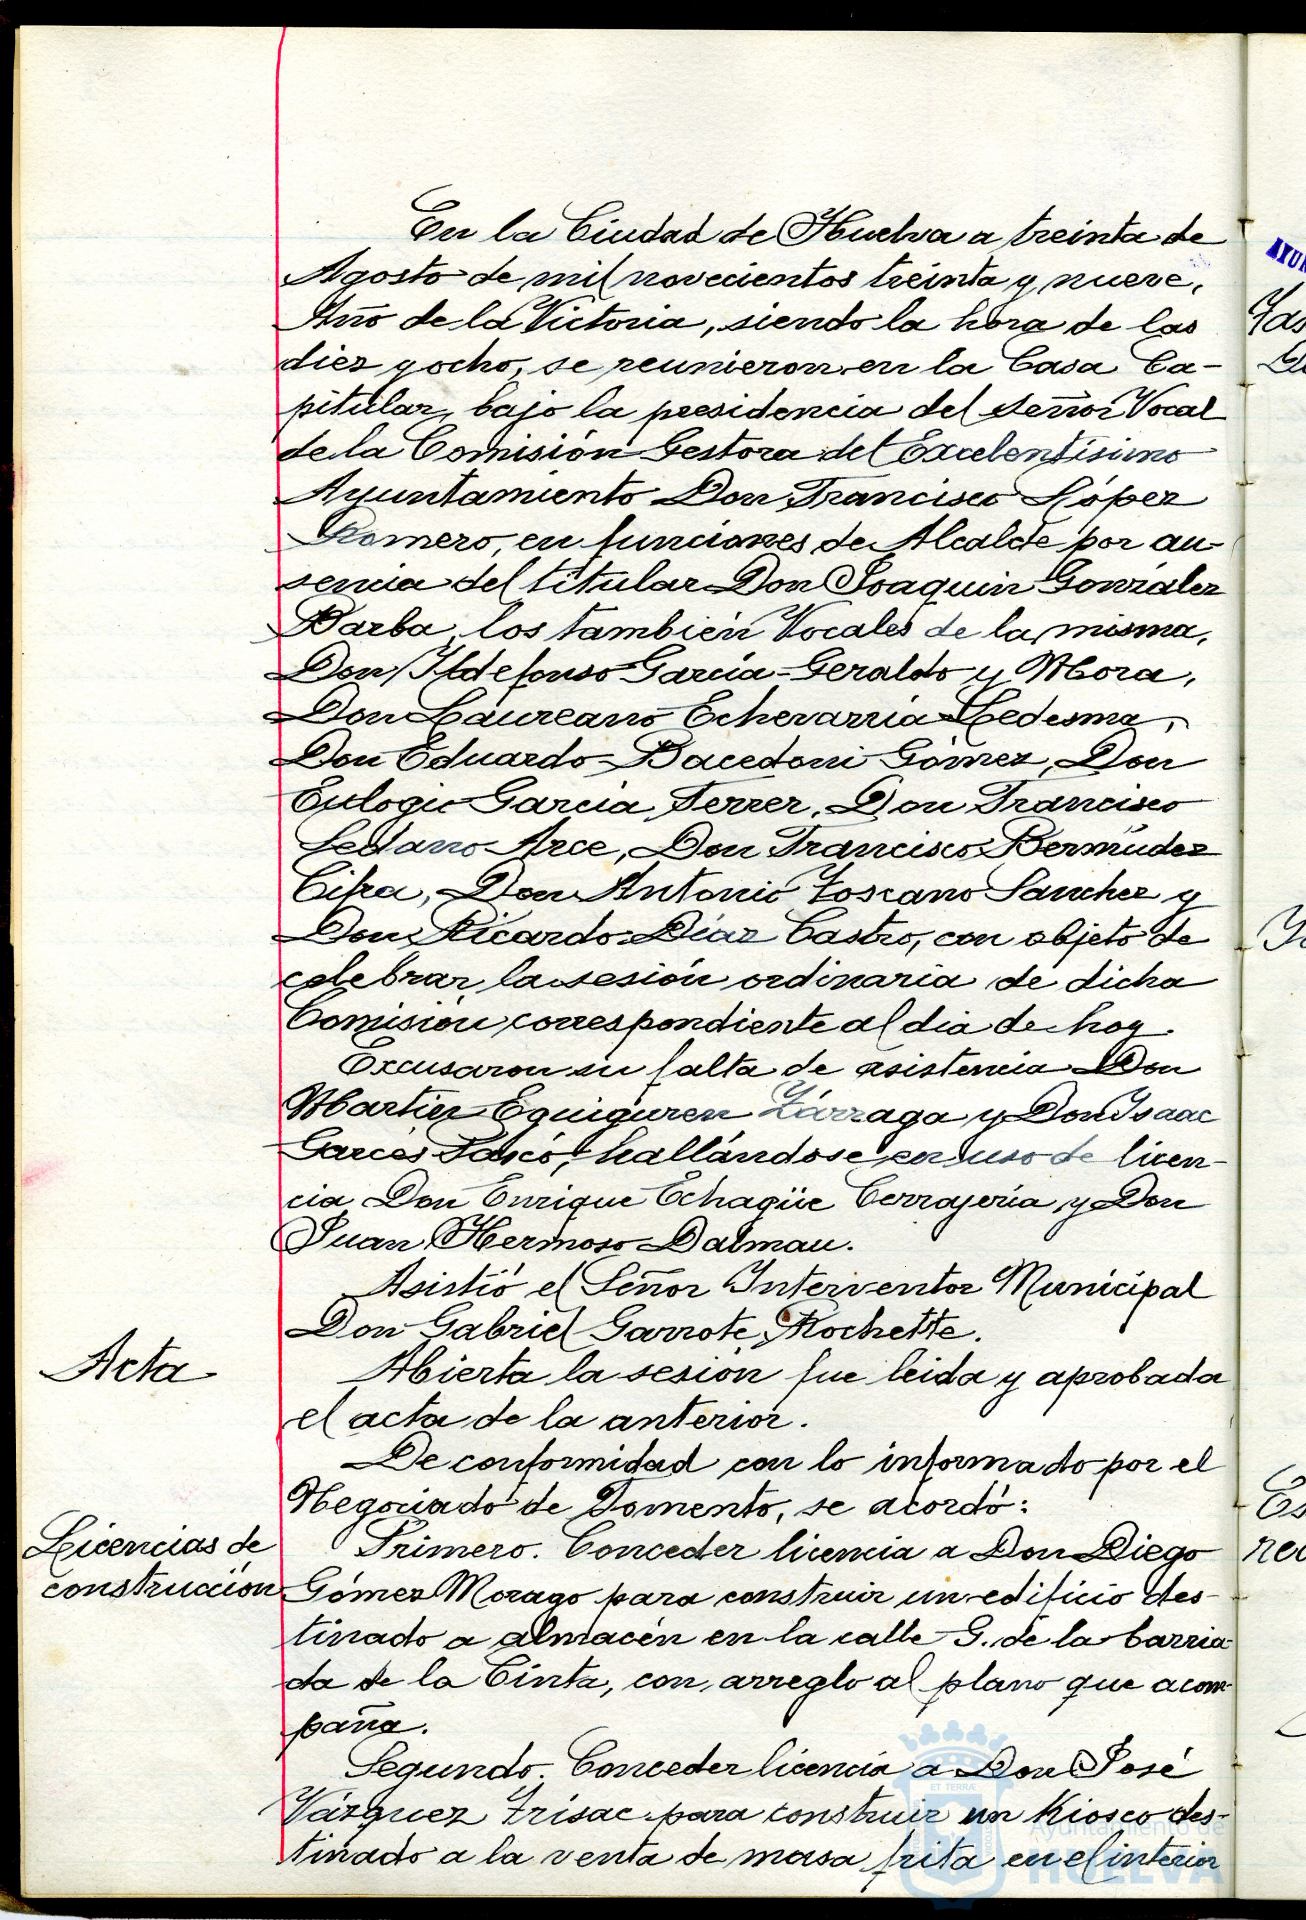 En la Ciudad de Huelva a treinta de
Agosto de mil novecientos treinta y nueve,
Año de la Victoria, siendo la hora de las
diez y ocho, se reunieron en la Casa Ca-
pitular, bajo la presidencia del señor Vocal
de la Comisión Gestora del Excelentísimo
Ayuntamiento Don Francisco López
Romero, en funciones de Alcalde por au-
sencia del titular Don Joaquin González
Barba, los también Vocales de la misma,
Don Ildefonso García-Geraldo y Mora,
Don Laureano Echevarría Ledesma,
Don Eduardo Bacedoni Gómez, Don
Eulogio García Ferrer, Don Francisco
Sedano Arce, Don Francisco Bermúdez
Cifra, Don Antonio Toscano Sanchez y
Don Ricardo Díaz Castro, con objeto de
celebrar la sesión ordinaria de dicha
Comisión correspondiente al dia de hoy.
Excusaron su falta de asistencia Don
Martier Eguiguren Zárraga y Don Isaac
Garcés hallándose en uso de licen-
cia Don Enrique Echagüe Cerrajería y Don
Juan Hermoso Dalmau.
Asistió el Señor Interventor Municipal
Don Gabriel Garrote Rochette.
Acta
Abierta la sesión fue leida y aprobada
el acta de la anterior.
De conformidad con lo informado por el
Negociado de Fomento, se acordó:
Licencias de
construcción
Primero. Conceder licencia a Don Diego
Gómez Morago para construir un edificio des-
tinado a almacén en la calle G. de la barria-
da de la Cinta, con arreglo al plano que acom-
paña.
Segundo. Conceder licencia a Don José
Vázquez Frisac para construir un Kiosco des-
tinado a la venta de masa frita en el interior
ET TERRÆ
Ayuntamiento de
HUELVA